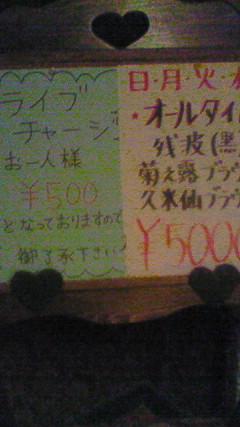 ライブ
チャージ
お一人様
¥500
となっておりますので
御了承下さい
日・月・火・水
・オールタイ
残波(黒
菊之露ブラ
久米仙ブラ
¥5000